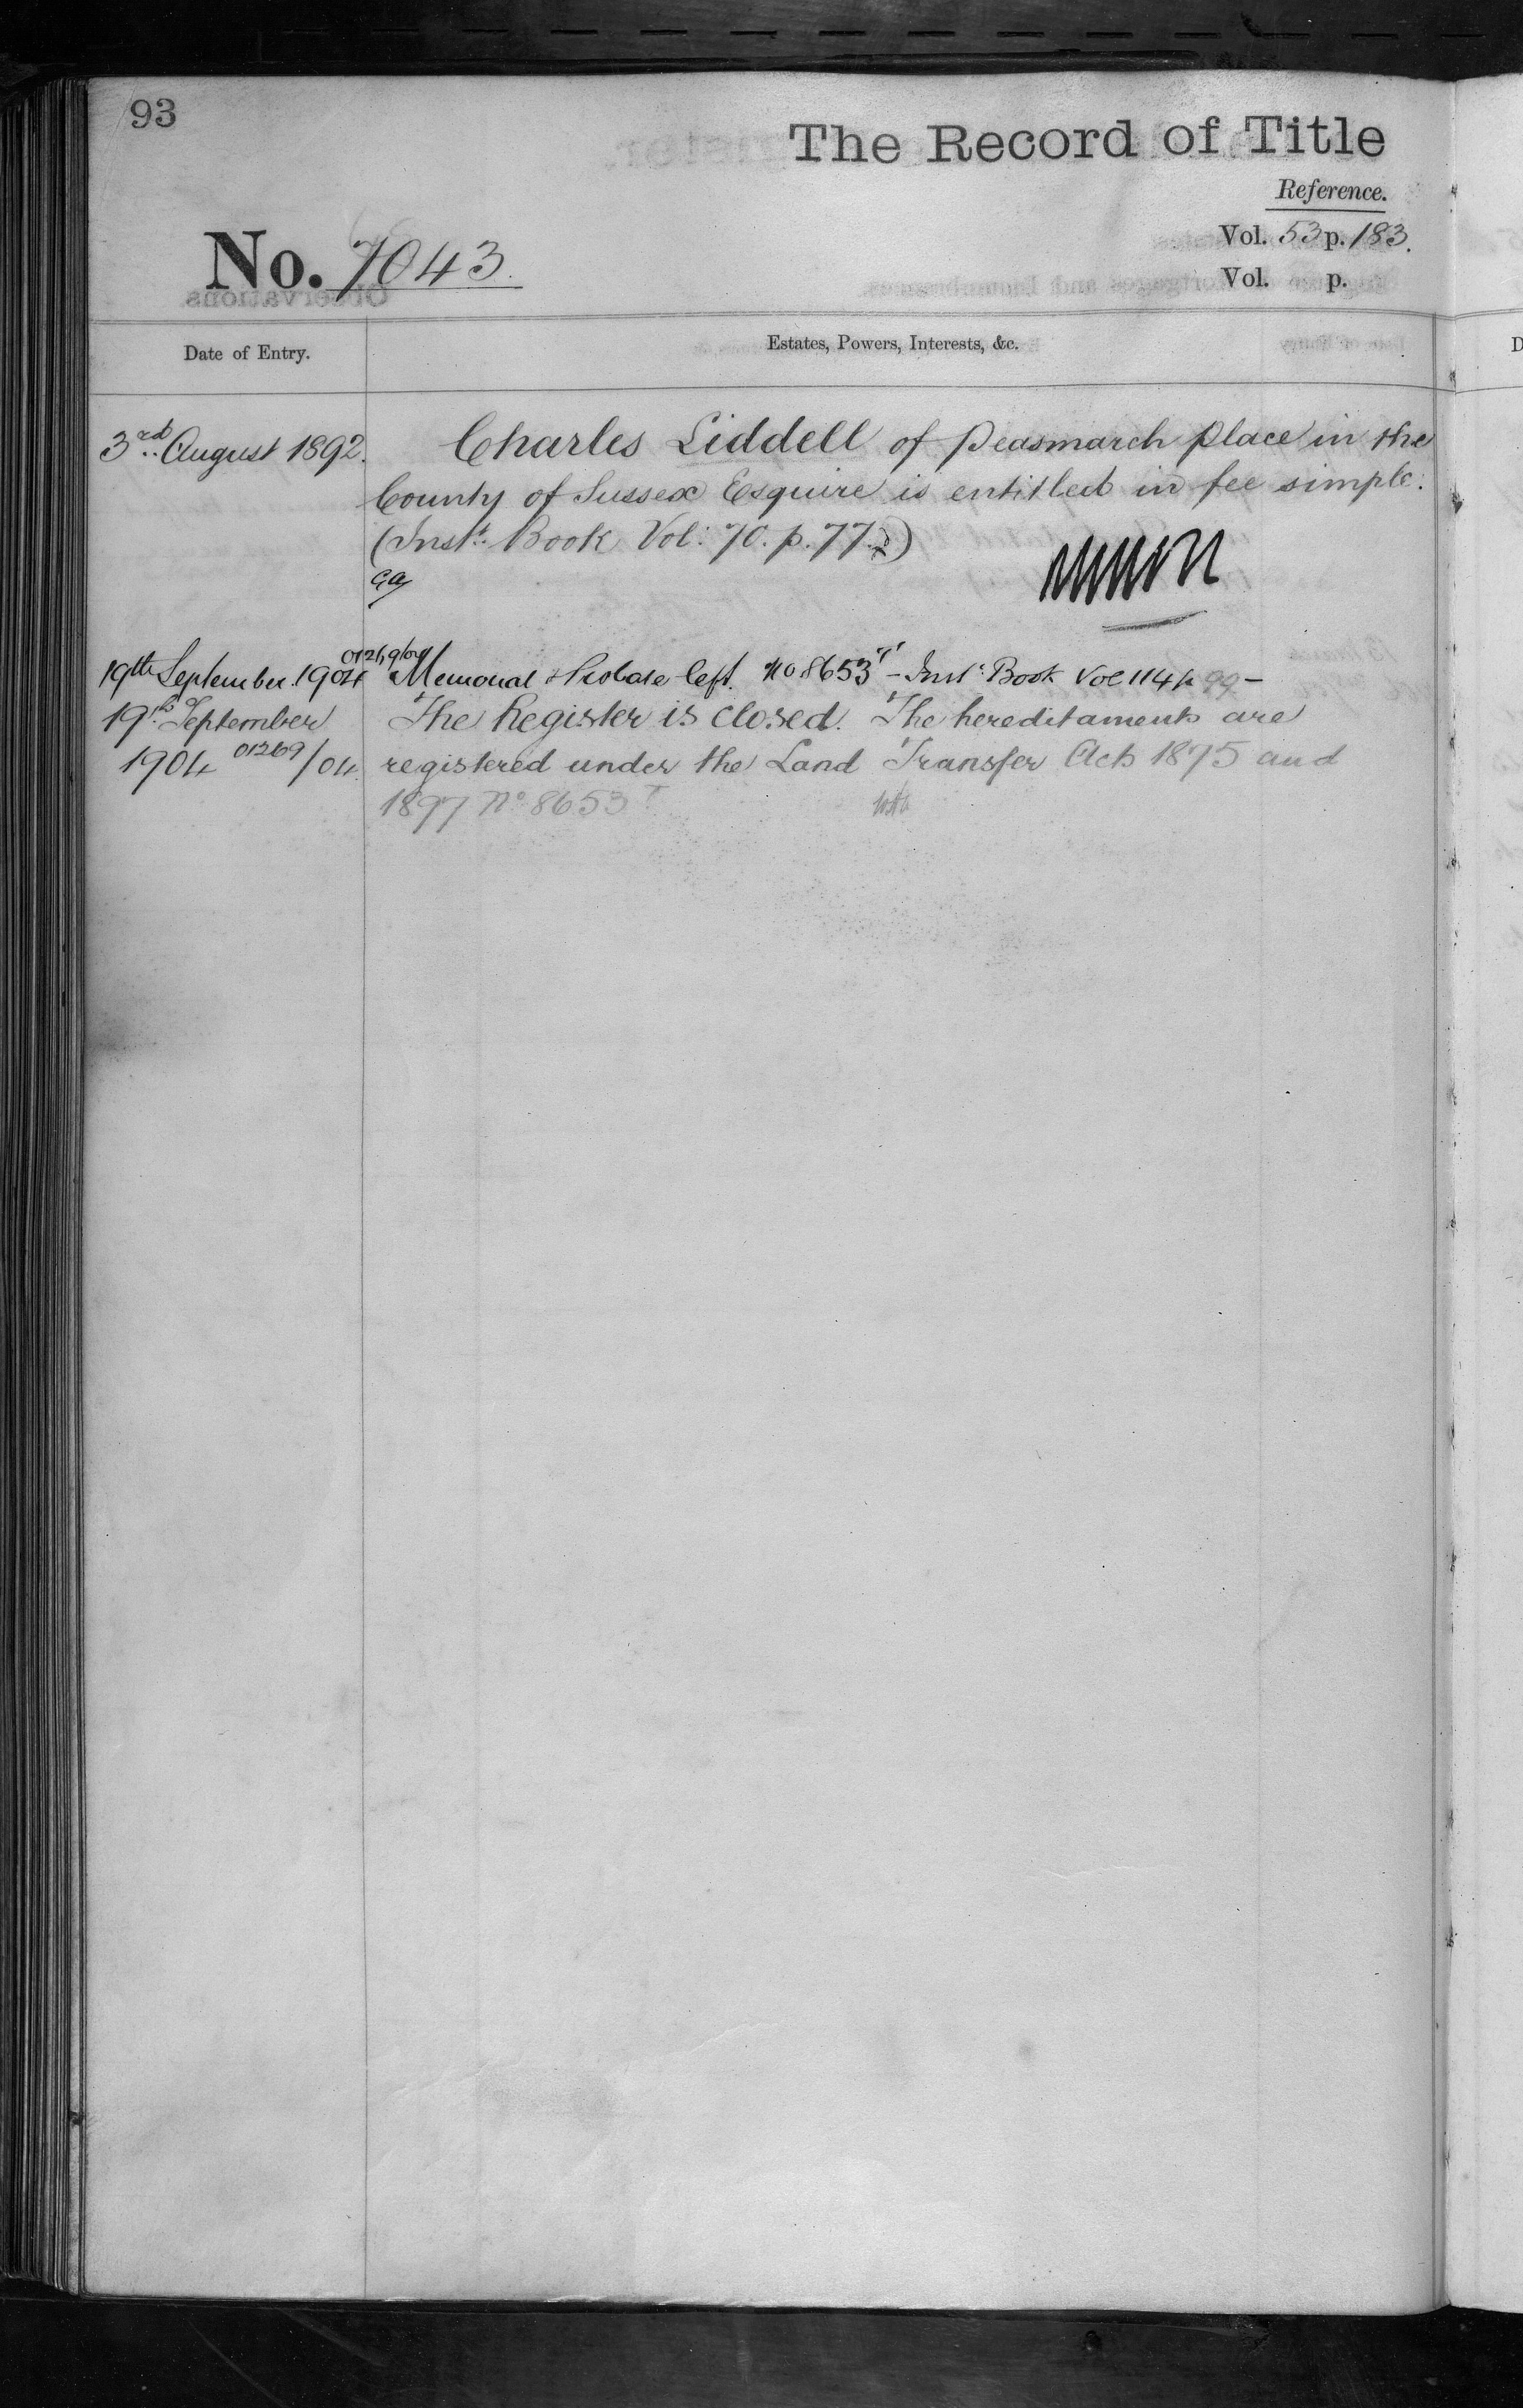 93
The Record of Title
Reference.
Vol. 53 p. 183.
No. 7043.
Vol. p.
Date of Entry.
Estates, Powers, Interests, &c.
3rd August 1892.
Charles Liddell of Peasmarch Place in the
County of Sussex Esquire is entitled in fee simple.
(Inst. Book Vol: 70. p. 77.)
19th September 1904 01269/04
Memorial & Probate left. No 8653 T - Inst: Book Vol 114 p 99 -
19th September
The Register is closed. The hereditaments are
1904 01269/04.
registered under the Land Transfer Acts 1875 and
1897 No 8653 T